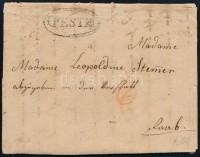 PESTH
Madame
Madame Leopoldine Stemer
abzugeben in der Vorstadt
Raab.